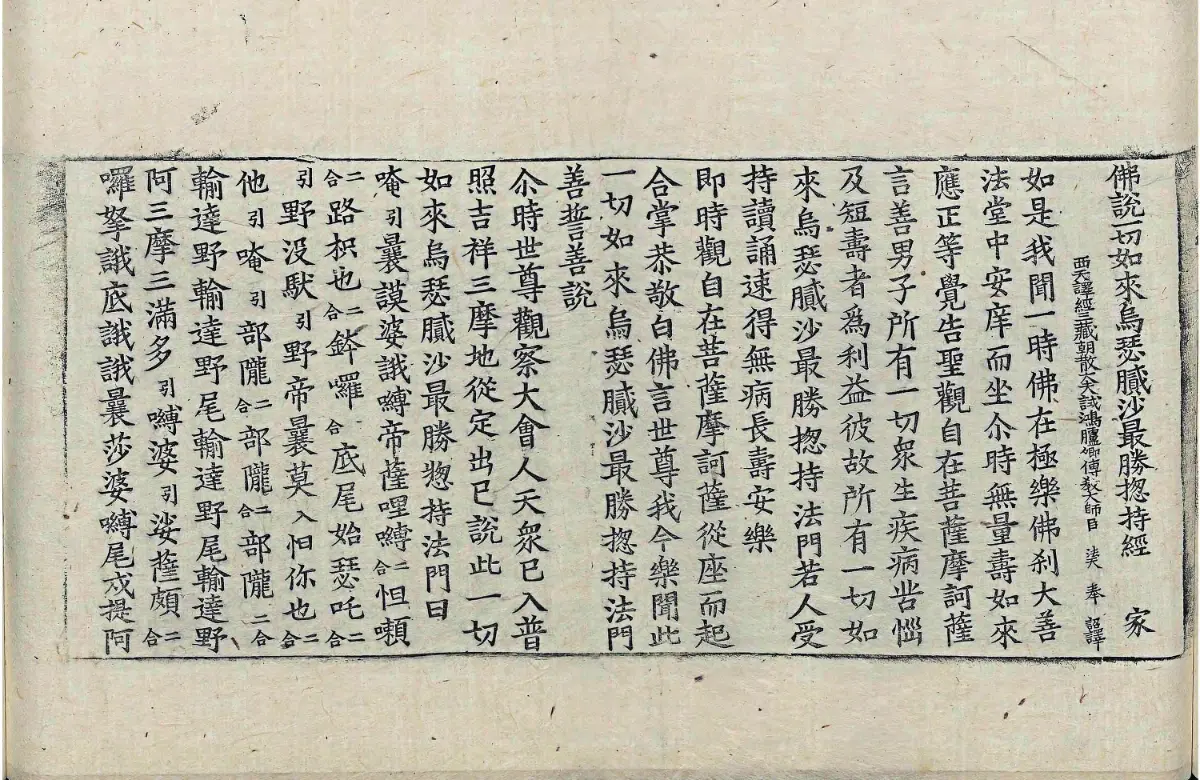 佛說一切如來烏瑟膩沙最勝揔持經 家
西天譯經三藏朝散大夫試鴻臚卿傳教大師臣 法天 奉 詔譯
如是我聞一時佛在極樂佛刹大善
法堂中安庠而坐尒時無量壽如來
應正等覺告聖觀自在菩薩摩訶薩
言善男子所有一切衆生疾病苦惱
及短壽者爲利益彼故所有一切如
來烏瑟膩沙最勝揔持法門若人受
持讀誦速得無病長壽安樂
即時觀自在菩薩摩訶薩從座而起
合掌恭敬白佛言世尊我今樂聞此
一切如來烏瑟膩沙最勝揔持法門
善誓善說
尒時世尊觀察大會人天衆已入普
照吉祥三摩地從定出已說此一切
如來烏瑟膩沙最勝揔持法門曰
唵引曩謨婆誐嚩帝薩哩嚩二合怛㘑
二合路枳也二合鉢囉二合底尾始瑟吒二合
引野没馱引野帝曩莫入怛你也二合
他引唵引部隴二合部隴二合部隴二合
輸達野輸達野尾輸達野尾輸達野
阿三摩三滿多引嚩婆引娑薩頗二合
囉拏誐底誐誐曩莎婆嚩尾戍提阿